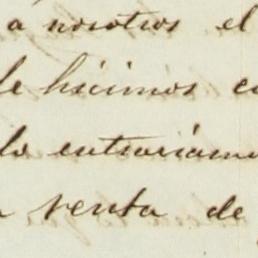 a nosotros el
le hicimos
lo entrariamo
venta de